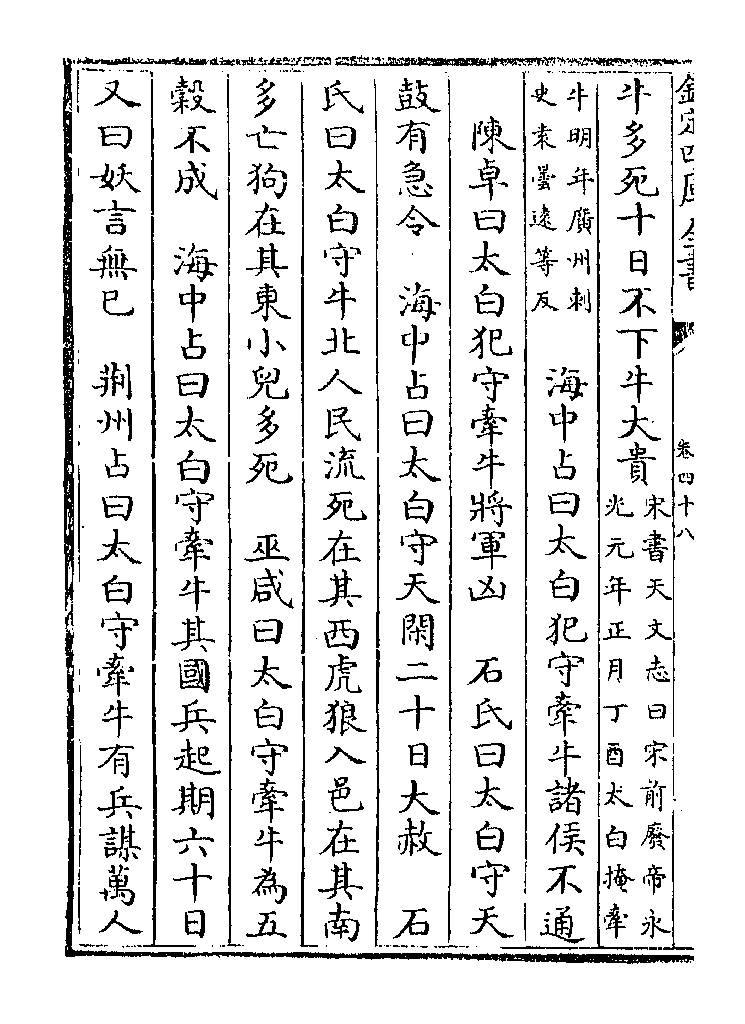 欽定四庫全書
卷四十八
牛多死十日不下牛大貴宋書天文志曰宋前廢帝永
光元年正月丁酉太白掩牽
牛明年廣州刺
史袁曇遠等反
海中占曰太白犯守牽牛諸侯不通
陳卓曰太白犯守牽牛將軍凶　石氏曰太白守天
鼓有急令　海中占曰太白守天關二十日大赦　石
氏曰太白守牛北人民流死在其西虎狼入邑在其南
多亡狗在其東小兒多死　巫咸曰太白守牽牛為五
穀不成　海中占曰太白守牽牛其國兵起期六十日
又曰妖言無已　荆州占曰太白守牽牛有兵謀萬人